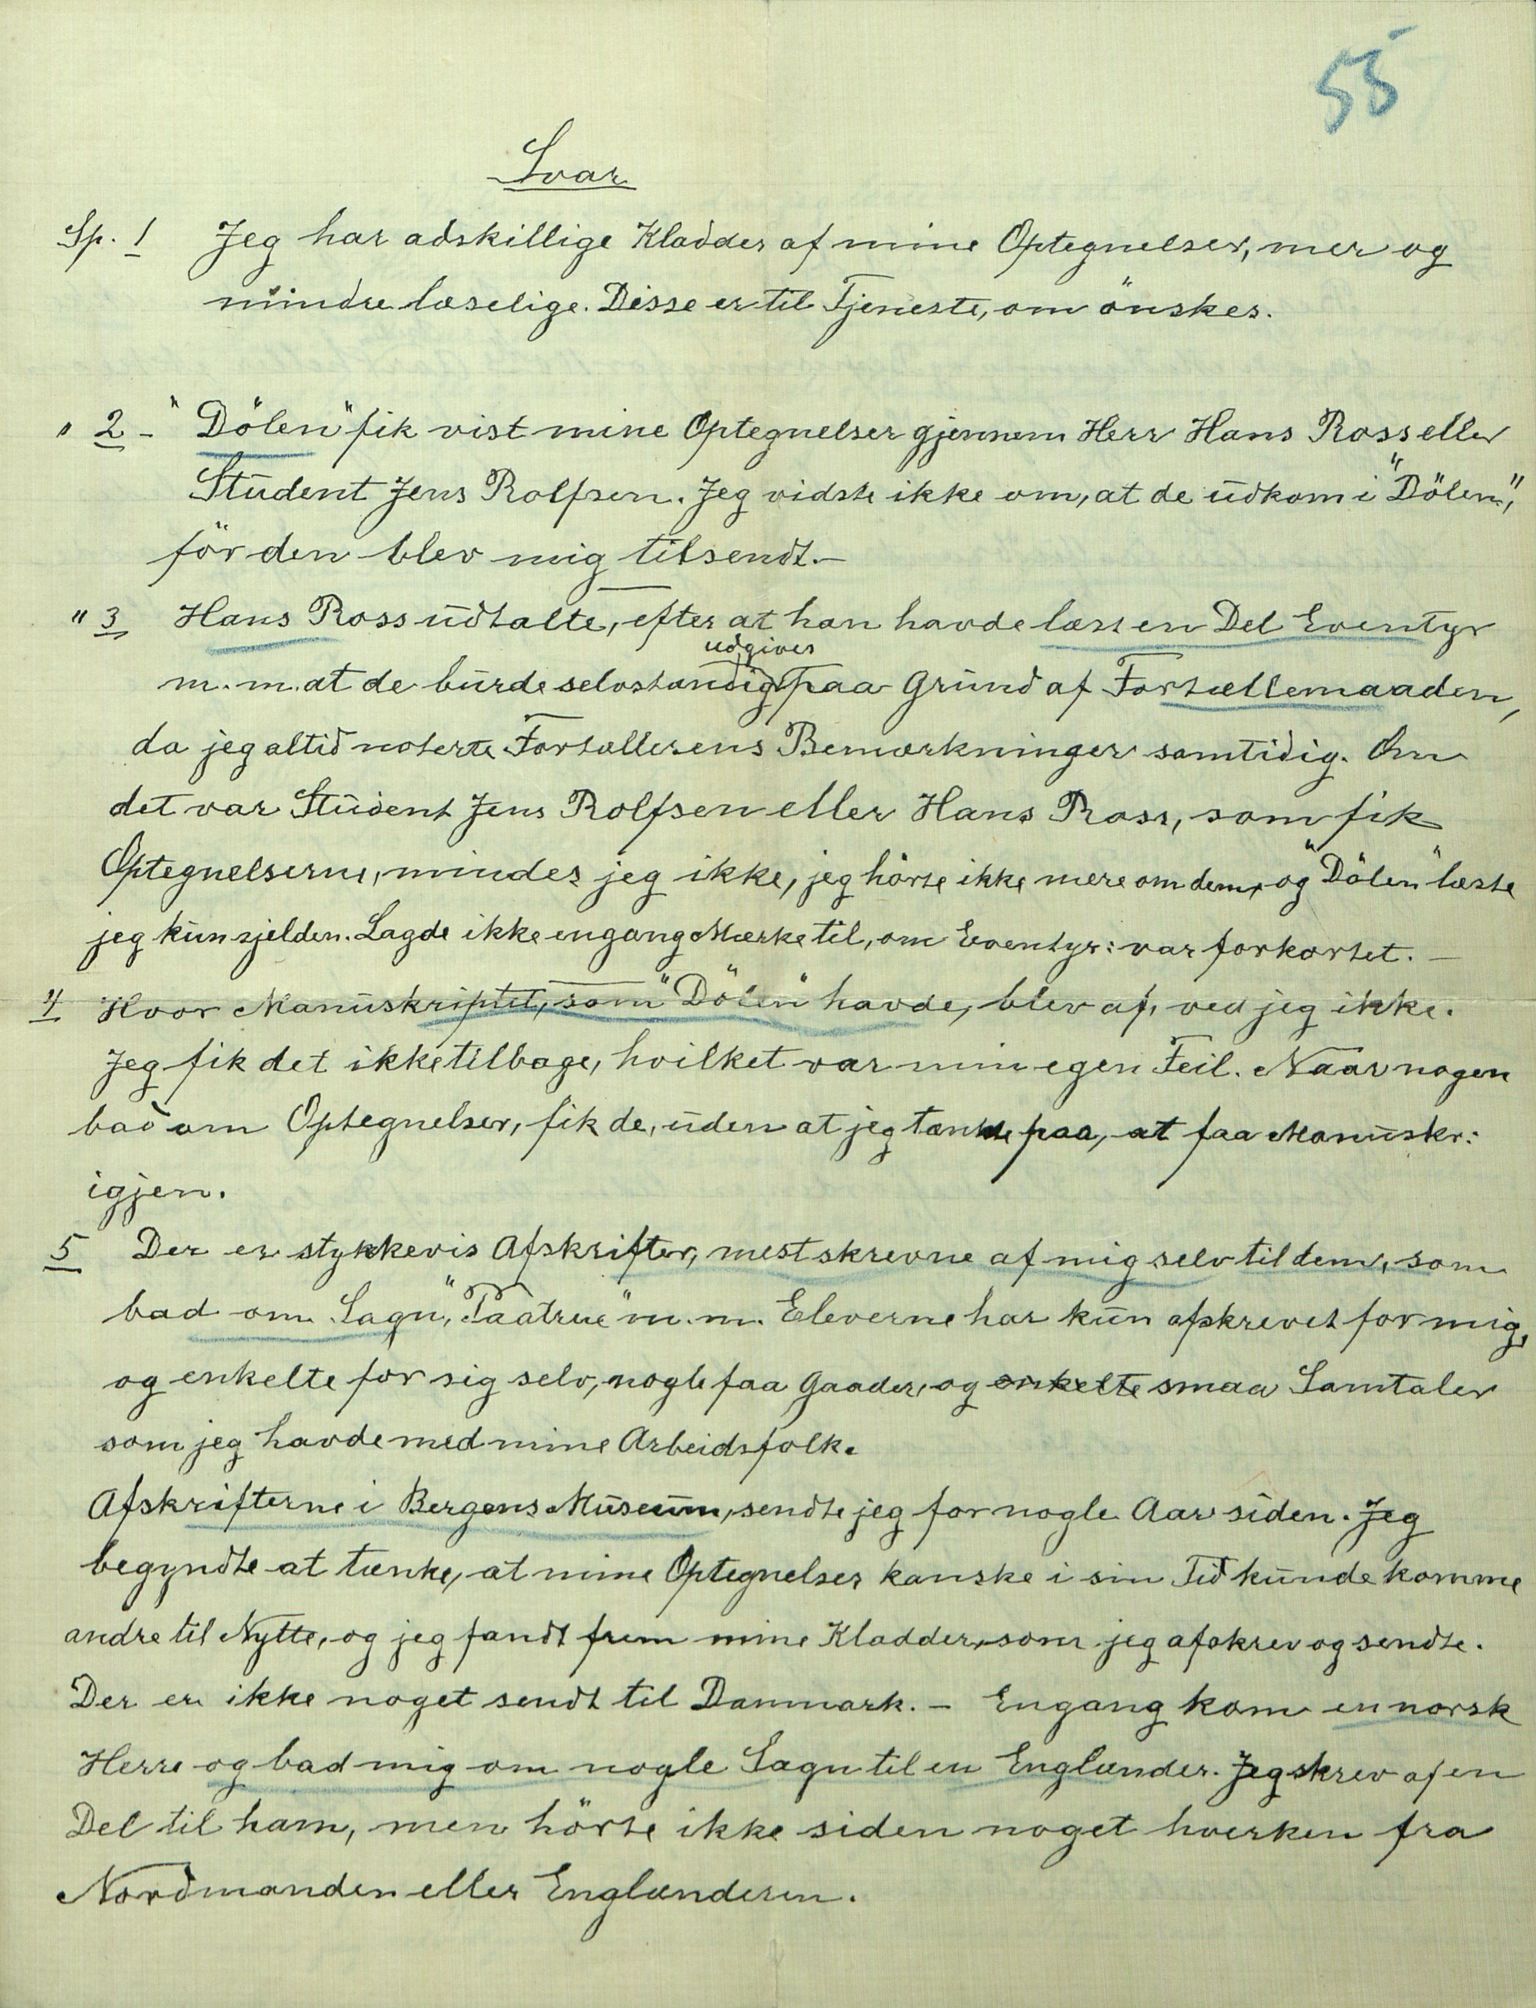 55
Svar
Sp. 1 Jeg har adskillige Kladder af mine Optegnelser, mer og
mindre læselige. Disse er til Tjeneste, om önskes.
" 2 - "Dölen" fik vist mine Optegnelser gjennem Herr Hans Ross eller
Student Jens Rolfsen. Jeg vidste ikke om, at de udkom i "Dölen",
för den blev mig tilsendt. —
" 3 Hans Ross udtalte, efter at han havde læst en Del Eventyr
udgives
m. m. at de burde selvstændig paa Grund af Fortællemaaden,
da jeg altid noterte Fortællerens Bemærkninger samtidig. Om
det var Student Jens Rolfsen eller Hans Ross, som fik
Optegnelserne, mindes jeg ikke, jeg hörte ikke mere om dem, og "Dölen" læste
jeg kun sjelden. Lagde ikke engang Mærke til, om Eventyr: var forkortet. —
4 Hvor Manuskriptet, som "Dölen" havde, blev af, ved jeg ikke.
Jeg fik det ikke tilbage, hvilket var min egen Feil. Naar nogen
bad om Optegnelser, fik de, uden at jeg tænkte paa, at faa Manuskr:
igjen.
5 Der er stykkevis Afskrifter, mest skrevne af mig selv til dem, som
bad om Sagn", "Paatrue" m. m. Eleverne har kun afskrevet for mig,
og enkelte for sig selv, nogle faa Gaader, og enkelte smaa Samtaler
som jeg havde med mine Arbeidsfolk.
Afskrifterne i Bergens Museum, sendte jeg for nogle Aar siden. Jeg
begyndte at tænke, at mine Optegnelser kanske i sin Tid kunde komme
andre til Nytte, og jeg fandt frem mine Kladder, som jeg afskrev og sendte.
Der er ikke noget sendt til Danmark. — Engang kom en norsk
Herre og bad mig om nogle Sagn til en Englænder. Jeg skrev af en
Del til ham, men hörte ikke siden noget hverken fra
Nordmanden eller Englænderen.